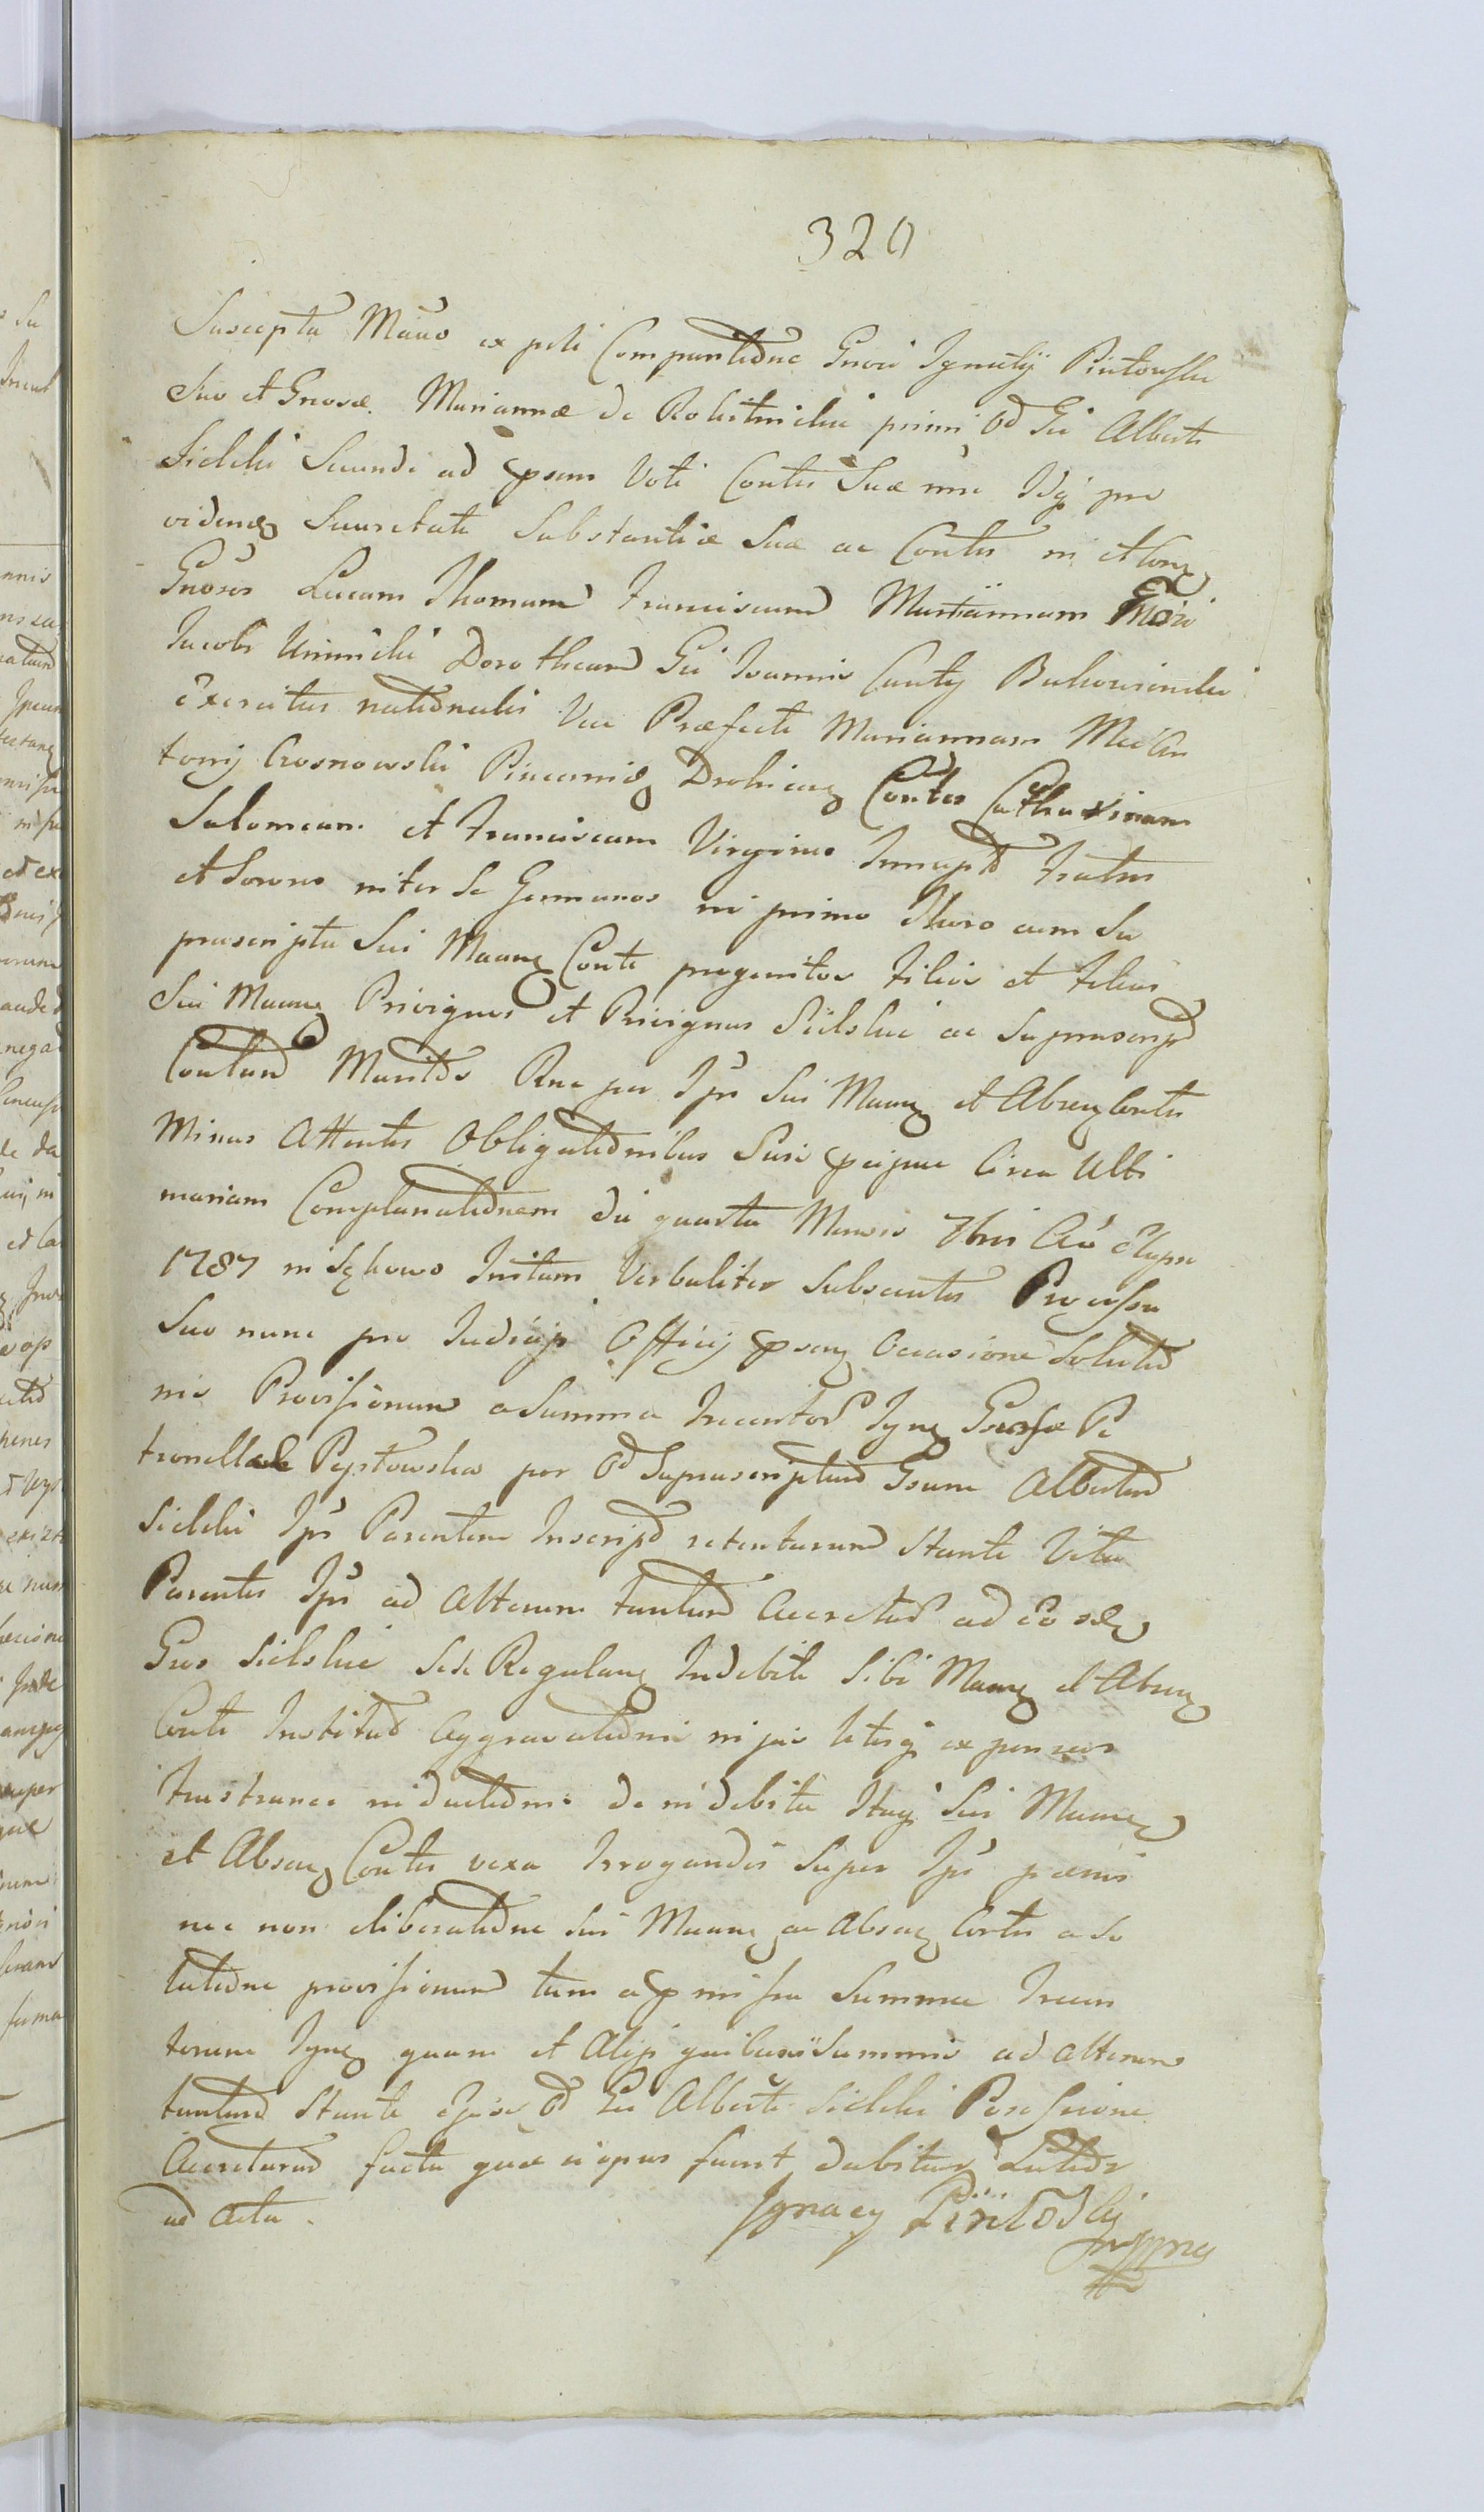 320
Suscepta Maño ex psti Comparitione Gnosi Ignatij Piętowski
Suo et Gnosæ Mariannæ de Rokitnickie primi Od Gsi Alberti
Sielski Secundi ad psens Voti Contis Suæ nõe Idq pro
videnq Securitati Substantiæ Suæ ac Contis in et Conq
Gnosos Lucam Thomam Franciscum Martiannam Gñosi
Jacobi Uninski Dorotheam Gsi Joannis Canty Bukowiecki
Exercitus nationalis Vice Præfecti Mariannam Mci An
tonij Crosnowski Pincerniq Drohicenq Contes Catharinam
Salomeam et Franciscam Virgines Innupt Fratres
et Sorores inter Se Germanos in primo Thoro cum Su
prascripta Sui Manq Conte progenitos Filios et Filias
Sui Manq Privignos et Privignas Sielskie ac Suprascrip
Contum Maritos Rne per Ips Sui Manq et Absenq Contis
Minus Attentis Obligationibus Suis pcipue Circa Ulti
mariam Complanationem die quarta Mensis 7bris Aõ Elapso
1787 in Sękowo Initam Verbaliter Subsecutis Processu
Suo nunc pro Judicijs Officij psenq Occasione Solutio
nis Provisionum a Summa Trecentor Ignq Gnosæ Pe
tronellæ Piętowska per Od Suprascriptum Gsum Albertum
Sielski Ips Parentem Inscrip retentarum Stante Vita
Parentis Ips ad Alterum tantum Accretar ad Eosq
Gsos Sielskie Sese Regulanq Indebite Sibi Manq et Absenq
Conti Institut Aggravationis in jus litisq expensas
frustranea inductione de indebita Itaq Sui Manq
et Absenq Contis vexa Irrogandis Super Ips pænis
nec non liberatione Sui Manq ac Absenq Contis a So
lutione provisionum tam a pmissa Summa Trecen
torum Ignq quam et Alijs quibusvis Summis ad alterum
tantum Stante Ejusd Od Gsi Alberti Sielski Possesione
Accretarum facta quæ si opus fuerit dabitur Latior
ad Acta.
Ignacy Piętowski
mppria